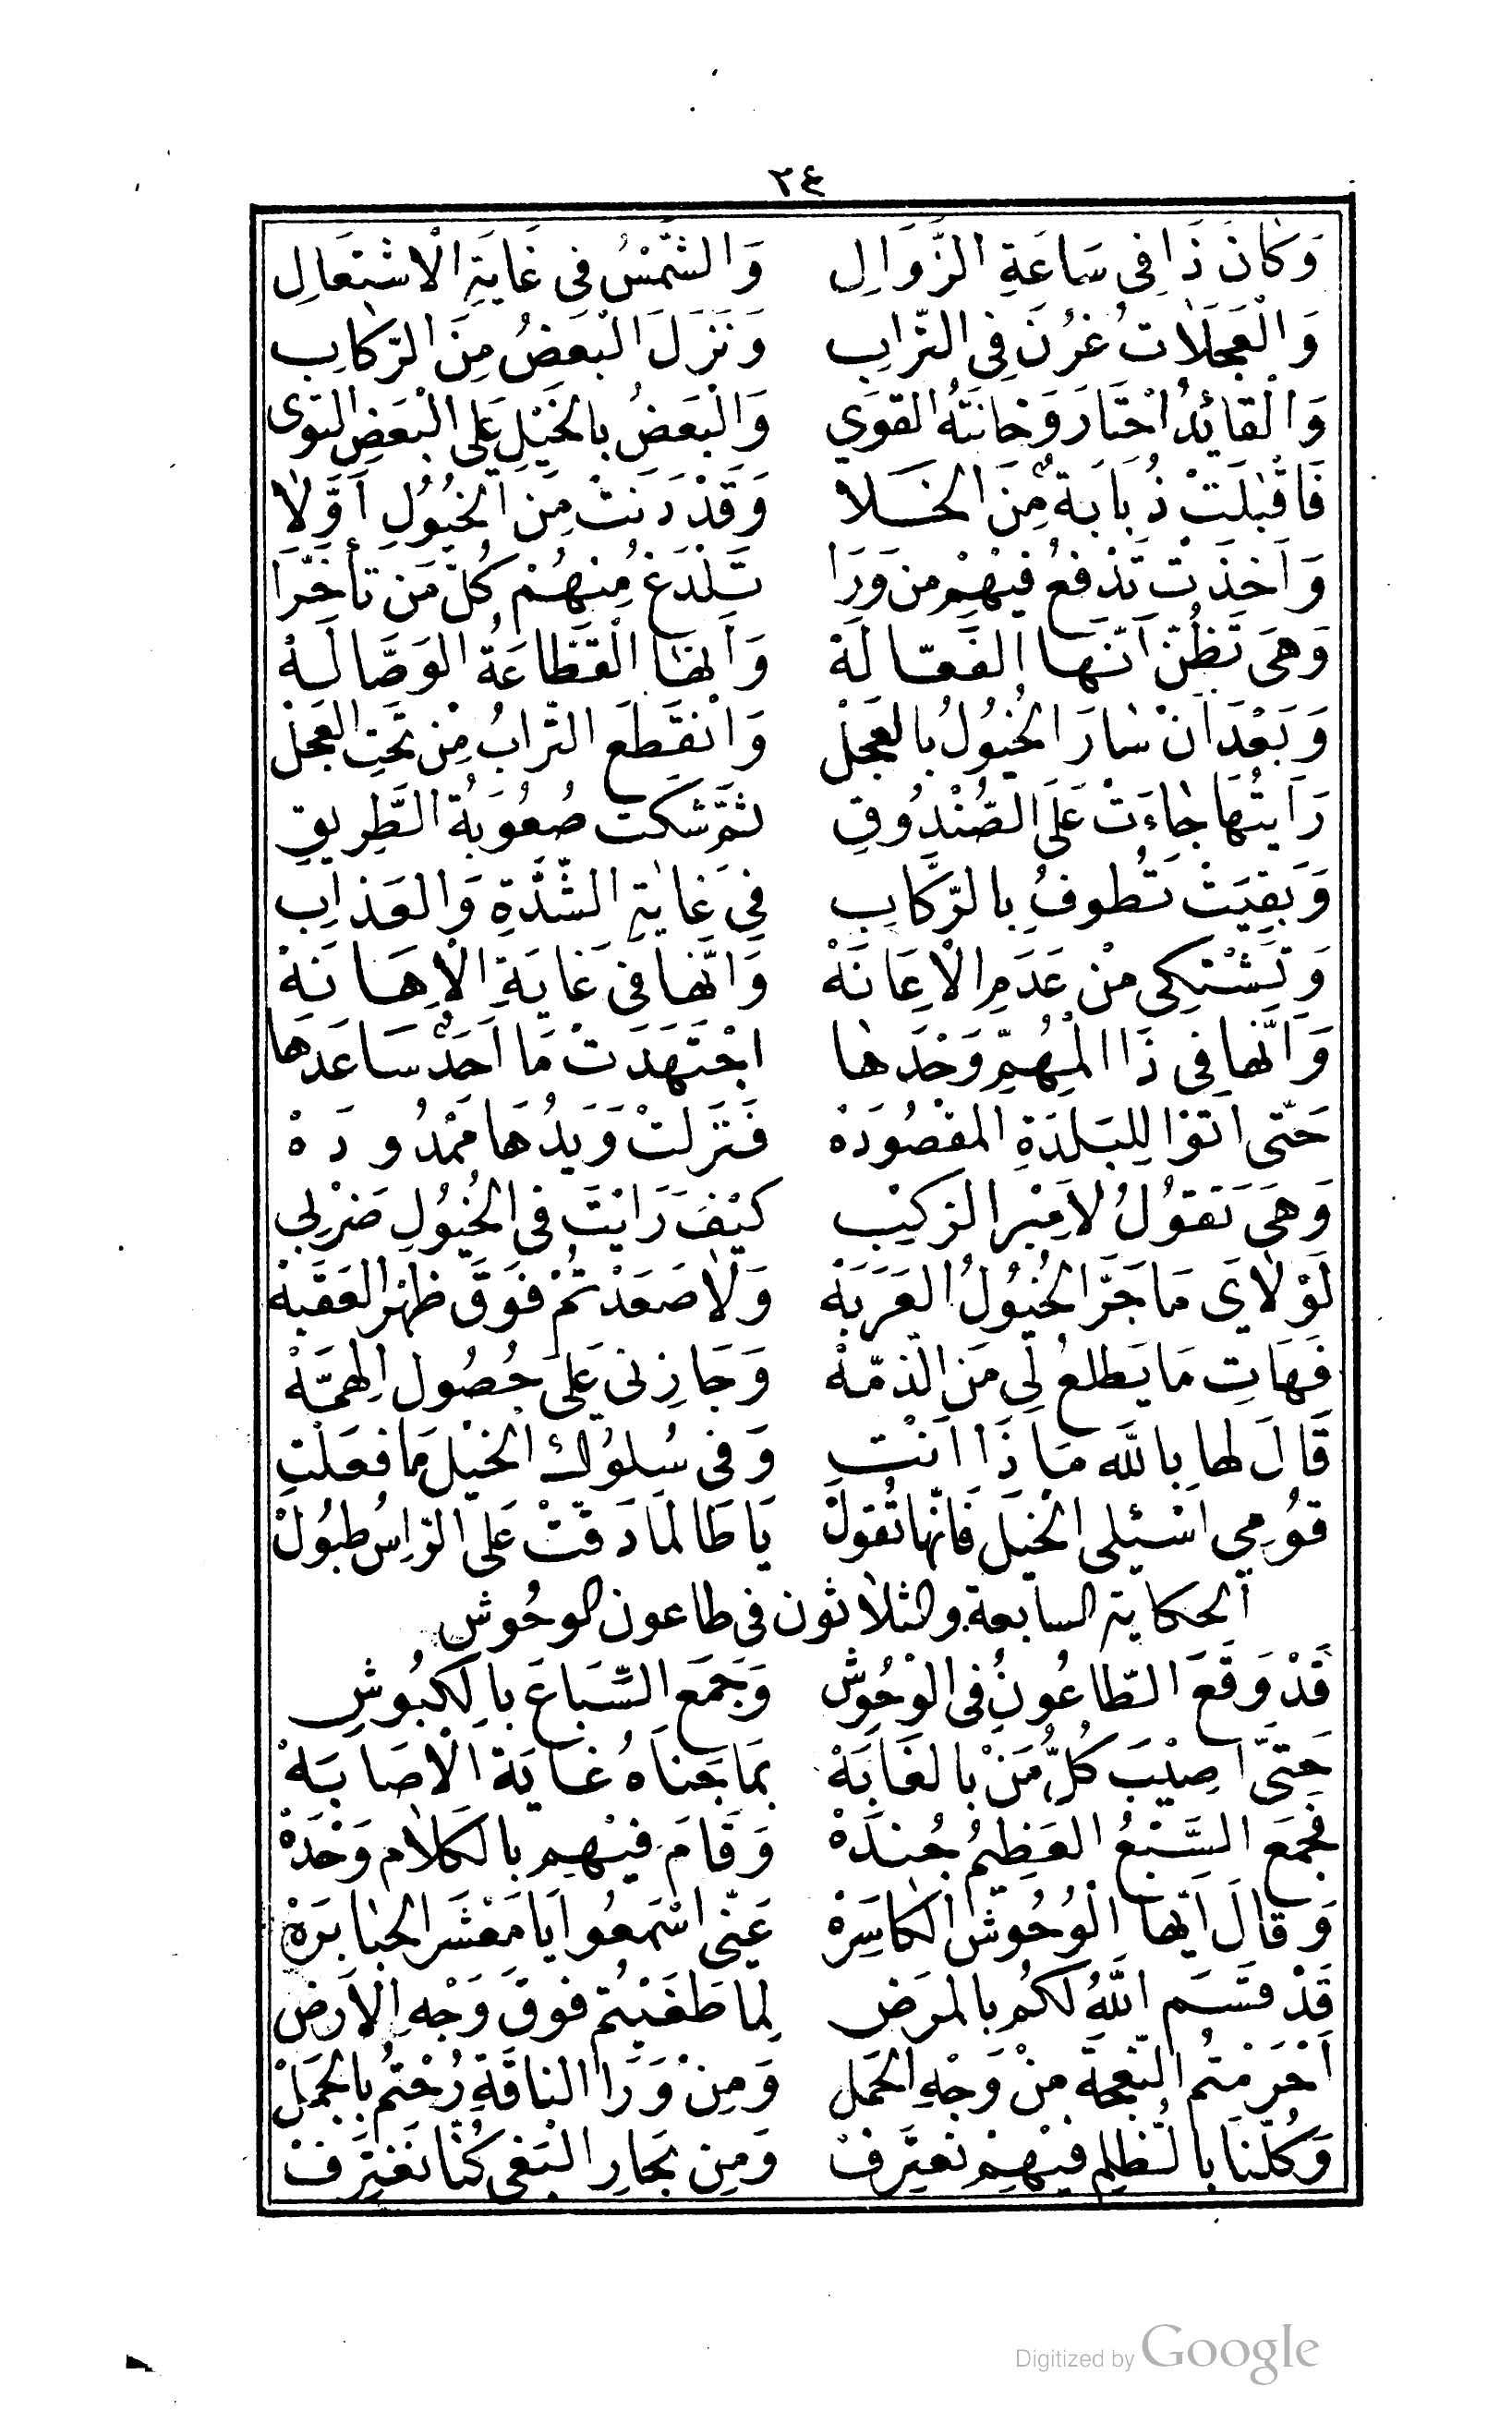 ٢٤
وَكَانَ ذَا فِي سَاعَةِ الزَّوَالِ وَالشَّمْسُ فِي غَايَةِ الْاشْتِعَالِ
وَالْعَجَلَاتُ غُرْنَ فِي التّرابِ وَنَزَلَ الْبَعْضُ مِنَ الرّكابِ
وَالْقَائِدُ احْتَارَ وَخَانَتْهُ القوَي وَالْبَعَضُ بِالخَيْلِ عَلَى الْبَعَضِ التوى
فَاَقْبَلَتْ ذُبَابَةٌ مِنَ الخَلا وَقَدْ دَنَتْ مِنَ الخُيُولِ اَوَّلَا
وَاَخَذَتْ تَدْفَعُ فِيْهِمْ مِن وَرَا تَلْدَغُ مِنْهُمْ كُلَّ مَن تأخَّرَا
وَهِيَ تَظُنّ اَنّهَا الفَعّالَهْ وَاَنهَا الْقَطَّاعَةُ الوَصَّالَهْ
وَبَعْدَ اَنْ سَارَ الخُيُولُ بِالعَجَلْ وَانْقَطَعَ التّرابُ مِنْ تَحتِ العَجَلْ
رَاَيتُهَا جَاءَتْ عَلَى الصّنْدُوقِ ثمّ شكت صُعُوبَةُ الطَّرِيقِ
وَبَقِيَتْ تَطُوفُ بِالرّكَابِ فِي غَايَةِ الشّدَّةِ وَالعَذابِ
وَتَشْتَكِي مِنْ عَدَمِ الْاعَانَهْ وَانّهَا فِي غَايَةِ الْاِهَانَهْ
وَانّهَا فِي ذَا المُهِمِّ وَحْدَهَا اجْتَهَدَتْ مَا اَحَدٌ سَاعَدَهَا
حَتّى اَتَوْا لِلبَلدَةِ المقْصُودَهْ فَنَزَلَتْ وَيَدُهَا مَمْدُودَهْ
وَهيَ تَقُولُ لاَمِيْرِ الرّكبِ كَيْفَ رَايْتَ فِي الخُيُولِ ضَرْبي
لَوْلَايَ مَا جَرَّ الخُيُولُ العَرَبَهْ وَلَا صَعَدْتُمْ فَوقَ ظهْرِ العَقَبَهْ
فَهَاتِ مَا يَطلعُ لِي مِنَ الذّمّهْ وَجَازِنى عَلَى حُصُولِ الهِمَّهْ
قَالَ لهَا بِاللهِ مَاذَا اَنْتِ وَفي سُلوُكِ الخَيْلِ مَا فعَلْتِ
قُومِي اسْئِلي الْخَيلَ فَانّهَا تَقولْ يَا طَالمَا دَقّتْ عَلَى الرّاسِ طبُولْ
الحكاية السابعة والثلاثون في طاعون الوحُوش
قَدْ وَقَعَ الطّاعُونُ فِي الْوحُوشْ وَجَمَعَ السّبَاعَ بِالكبُوشِ
حَتَّى اُصِيْبَ كُلُّ مَنْ بِالغَابَهْ بمَا جَنَاهُ غَايَةَ الْاصَابَهْ
فجمَعَ السَّبْعُ العَظِيمُ جُنْدَهْ وَقَامَ فِيْهِمِ بِالكَلَامِ وَحْدَهْ
وَقَالَ اَيّهَا الْوُحُوشُ الكَاسِرَهْ عَنّي اسْمَعُوا يَا مَعْشَرَ الجبَابِرَهْ
قَدْ قَسَمَ اللهُ لكُم بِالمَرَضِ لِما طَغَيْتُم فوقَ وَجْهِ الاَرضِ
اَحْرَمْتُمُ النّعجَةَ مِنْ وَجْهِ الحَمَل وَمِنْ وَرَا النَاقَةِ رُحْتُم بِالجمَلْ
وَكُلّنَا بِالظّلمِ فِيْهِمْ نعتَرِفْ وَمِن بحَارِ الْبَغي كُنّا نَغتَرِفْ
Digitized by Google